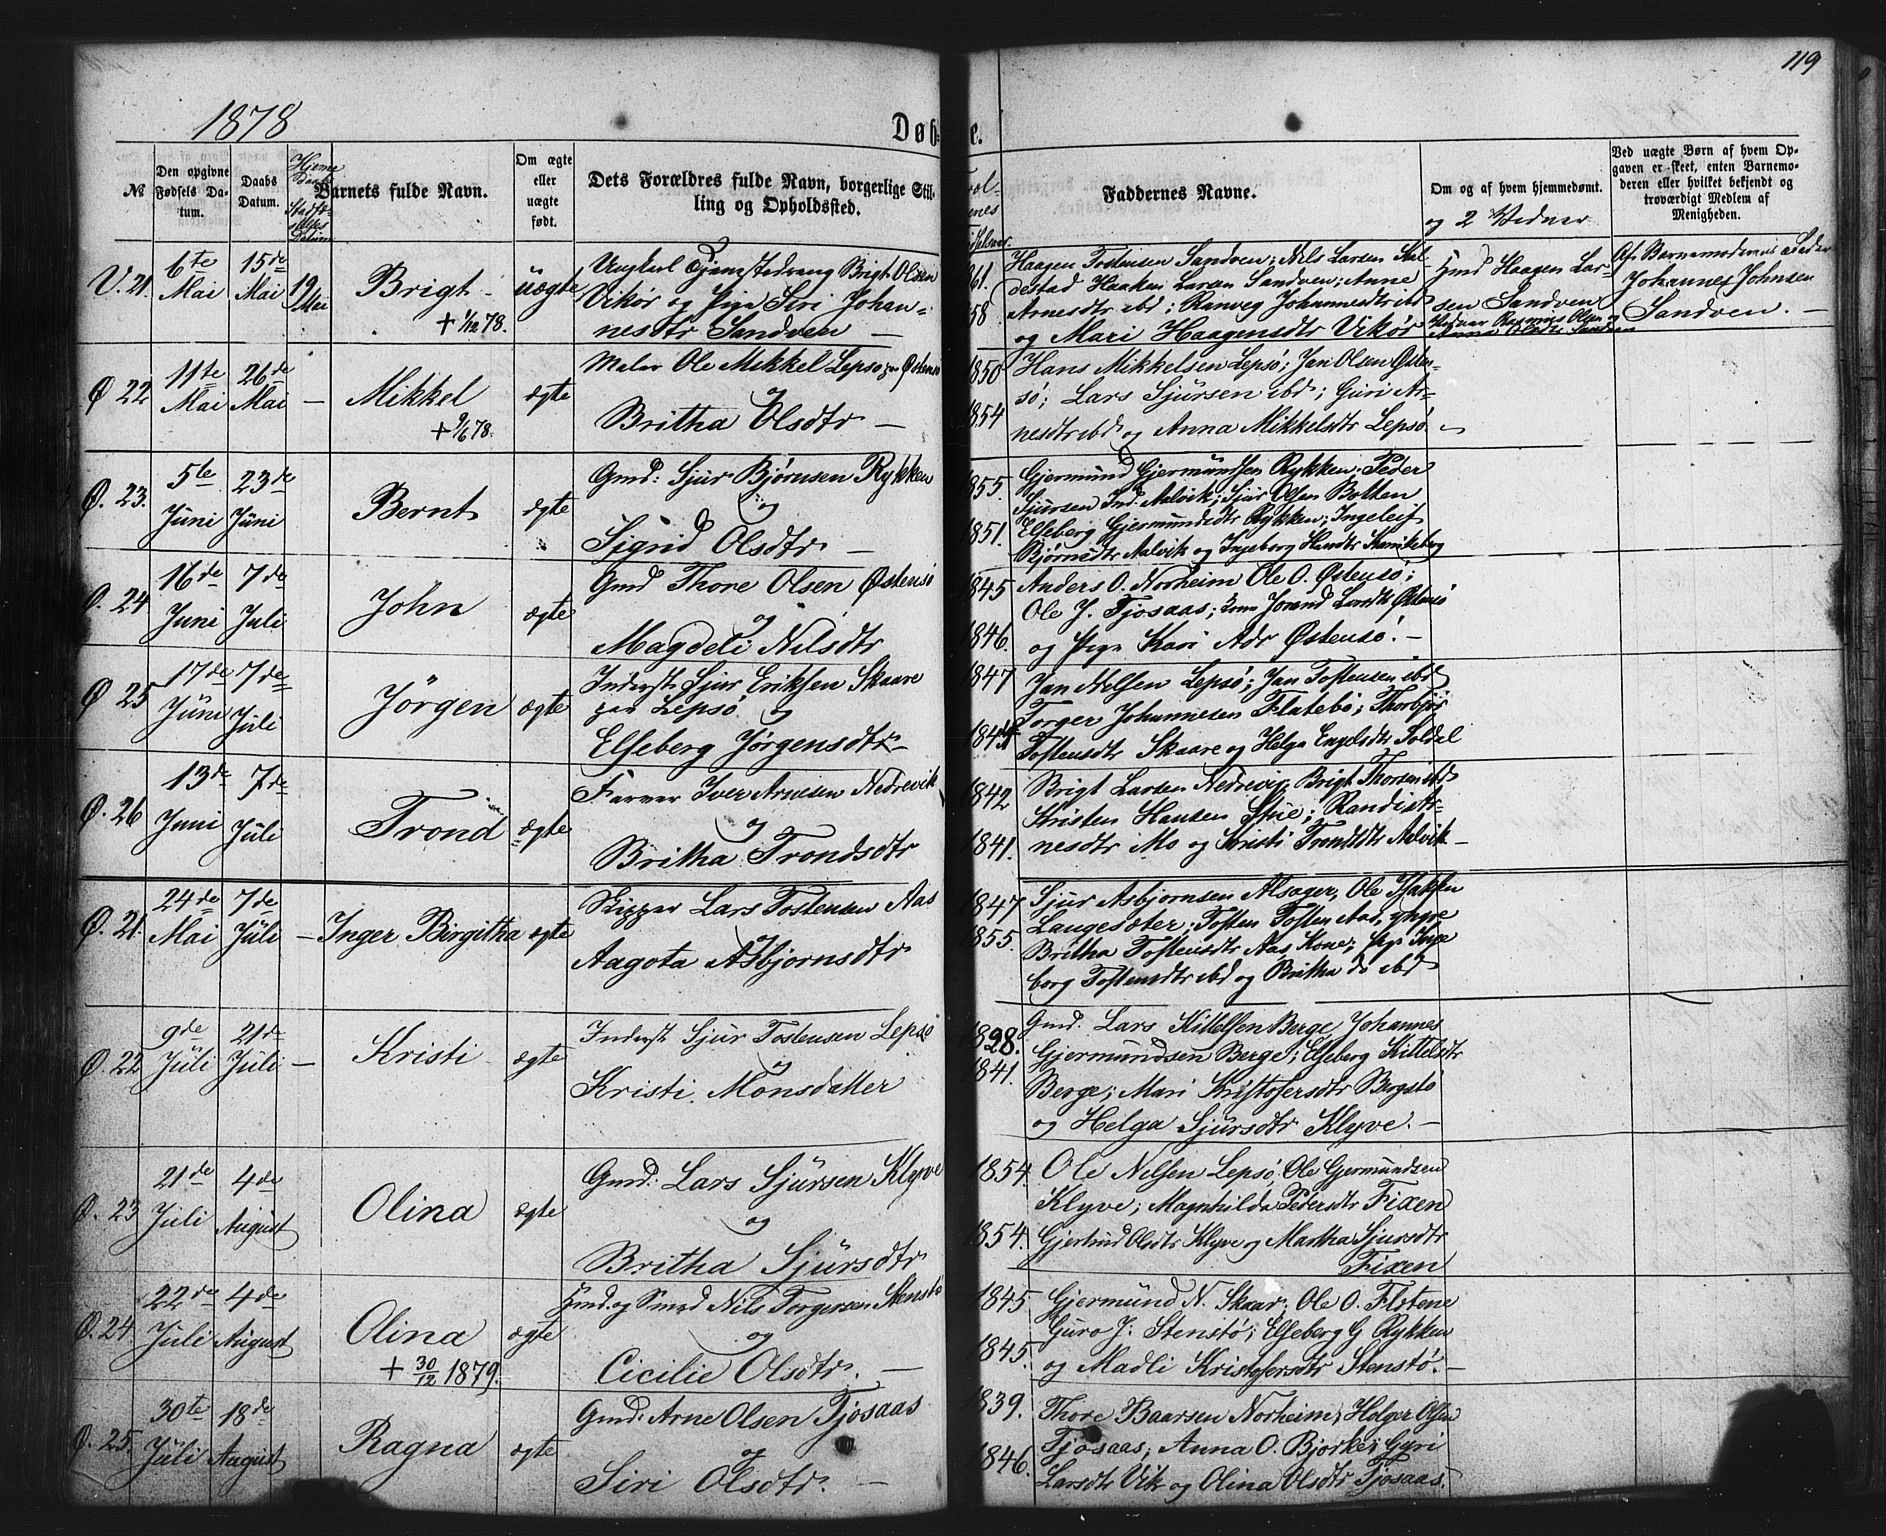 119
1878
Døb-
e.
№
Den opgivne Fødsels Datum.
Daabs Datum.
Hjemme Daab
Barnets fulde Navn.
Om ægte eller uægte født.
Dets Forældres fulde Navn, borgerlige Stilling og Opholdssted.
Faddernes Navne.
Om og af hvem hjemmedøbt.
og 2 Vidner
Ved uægte Børn af hvem Opgaven er skeet, enten Barnemoderen eller hvilket bekjendt og troværdigt Medlem af Menigheden.
V. 21. 6te Mai 15de Mai 19 Mai
Brigt
+ 1/12 78.
uægte
Ungkarl Brigt Olsen
Vikør og Pige Siri Johan-
nesdtr Sandven —
61.
58.
Haagen Tostensen Sandven; Nils Larsen
Haaken Larsen Sandven; Anne
Arnesdtr ibd; Ranveg Johannesdtr ibd
og Mari Haagensdtr Vikør
Gmd Haagen Lar-
sen Sandven
Vidner Rasmus Olsen og
Anna Sandven
Af Barnemoderens Fader
Johannes Johnsen
Sandven. —
Ø 22 11te Mai 26de Mai —
Mikkel
+ 9/6 78.
ægte
Maler Ole Mikkel Lepsø paa Østensø
og
Britha Olsdtr —
1850
1854
Hans Mikkelsen Lepsø; Jan Olsen Østen-
sø; Lars Sjursen ibd; Guri Ar-
nesdtr ibd og Anna Mikkelsdtr Lepsø —
Ø. 23. 5te Juni 23de Juni
Bernt
ægte
Gmd: Sjur Bjørnsen Rykken
og
Sigrid Olsdtr —
1855.
1851.
Gjermund Gjermundsen Rykken; Peder
Sjursen Ind. Aalvik; Sjur Olsen Botten
Elseberg Gjermundsdtr Rykken; Ingeleif
Bjørnsdtr Aalvik og Ingeborg
Ø. 24 16de Juni 7de Juli
John
ægte
Gmd Thore Olsen Østensø
og
Magdeli Nilsdtr
1845
1846.
Anders O. Norheim Ole O. Østensø;
Ole J. Tjosaas; Kone Jorand Larsdtr Østensø
og Pige Kari Østensø. —
Ø 25 17de Juni 7de Juli
Jörgen
ægte
Inderst Sjur Eriksen Skaare
paa Lepsø og
Elseberg Jörgensdtr —
1847
Jan Nelsen Lepsø; Jan Tostensen ibd
Torger Johannesen Flatebø; Thorbjør
Tostensdtr Skaare og Helga
Ø. 26 13de Juni 7de Juli
Trond
ægte
Farver Iver Arnesen Nedrevik
og
Britha Trondsdtr
1842
1841.
Brigt Larsen Nedrevig; Brigt Thorsen ibd
Kristen Hansen Stue; Randi Ar-
nesdtr Mo og Kristi Trondsdtr Aalvik —
Ø. 21. 24de Mai 7de Juli —
Inger Birgitha
ægte
Skipper Lars Tostensen Aas
og
Aagota Asbjornsdtr
1847
1855.
Sjur Asbjornsen Alsager, Ole Isaksen
Langesæter; Tosten Tosten Aas, yngre
Britha Tostensdtr Aas Kone; Pige Inge
borg Tostensdtr ibd og Britha do ibd
Ø. 22 9de Juli 21de Juli —
Kristi
ægte
Inderst Sjur Tostensen Lepsø
og
Kristi Monsdatter
1828.
1841.
Gmd. Lars Kittelsen Berge, Johannes
Gjermundsen Berge; Elseberg Kittelsdtr
Berge; Mari Kristofersdtr Bergstø
og Helga Sjursdtr Klyve. —
Ø. 23 21de Juli 4de August
Olina
ægte
Gmd: Lars Sjursen Klyve
og
Britha Sjursdtr
1854.
1854.
Ole Nelsen Lepsø, Ole Gjermundsen
Klyve; Magnhilda Pedersdtr Fixen
Gjertrud Olsdtr Klyve og Martha Sjursdtr
Fixen
Ø. 24. 22de Juli 4de August
Olina
+ 30/12 1879.
ægte
Hmd. og Smed Nils Torgersen Stenstø
og
Cicilie Olsdtr. —
1845
1845.
Gjermund N. Skaar; Ole O. Flotene
Guro J. Stenstø; Elseberg G Rykken
og Madli Kristofersdtr Stenstø. —
Ø. 25. 30te Juli 18de August
Ragna
ægte
Gmd: Arne Olsen Tjosaas
og
Siri Olsdtr. —
1839.
1846.
Thore Baarsen Norheim; Holger Olsen
Tjosaas; Anna O. Bjorke; Gyri
Larsdtr Vik og Olina Olsdtr Tjosaas.